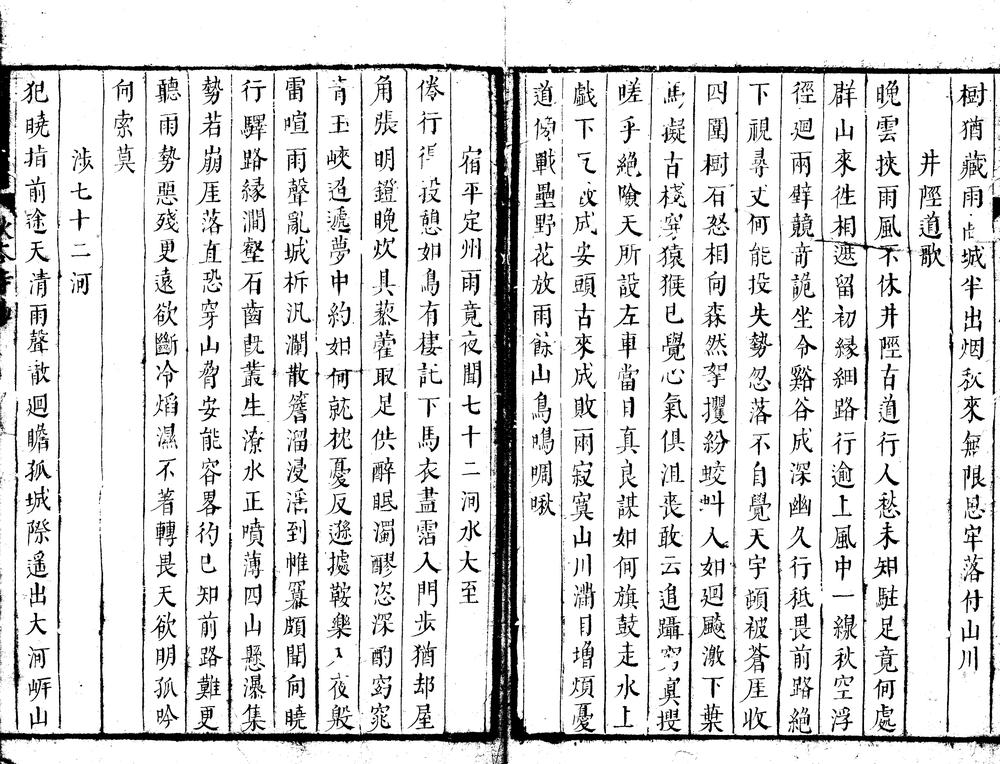 樹猶藏雨城半出烟秋來無限思牢落付山川
井陘道歌
晚雲挾雨風不休井陘古道行人愁未知駐足竟何處
群山來往相遮留初緣細路行逾上風中一線秋空浮
徑迴兩壁競奇詭坐令谿谷成深幽久行秪畏前路絕
下視尋丈何能投失勢忽落不自覺天宇頓被蒼厓收
四圍樹石怒相向森然拏攫紛蛟虯人如迴飈激下葉
馬擬古棧穿猿猴已覺心氣俱沮喪敢云追躡窮冥搜
嗟乎絕險天所設左車當日真良謀如何旗鼓走水上
戲下乞改成安頭古來成敗兩寂寞山川滿目增煩憂
道傍戰壘野花放雨餘山鳥鳴啁啾
宿平定州雨竟夜聞七十二河水大至
倦行得投憩如鳥有棲託下馬衣盡霑入門步猶却屋
角張明鐙晚炊具藜藿取足供醉眠濁醪恣深酌窈窕
青玉峽迢遞夢中約如何就枕憂反遜據鞍樂入夜殷
雷喧雨聲亂城柝汎瀾散簷溜浸淫到帷幕頗聞向曉
行驛路緣澗壑石齒既叢生潦水正噴薄四山懸瀑集
勢若崩厓落直恐穿山脅安能容畧彴已知前路難更
聽雨勢惡殘更遠欲斷冷焰濕不著轉畏天欲明孤吟
何索莫
涉七十二河
犯曉指前途天清雨聲散迴瞻孤城際遙出大河岍山